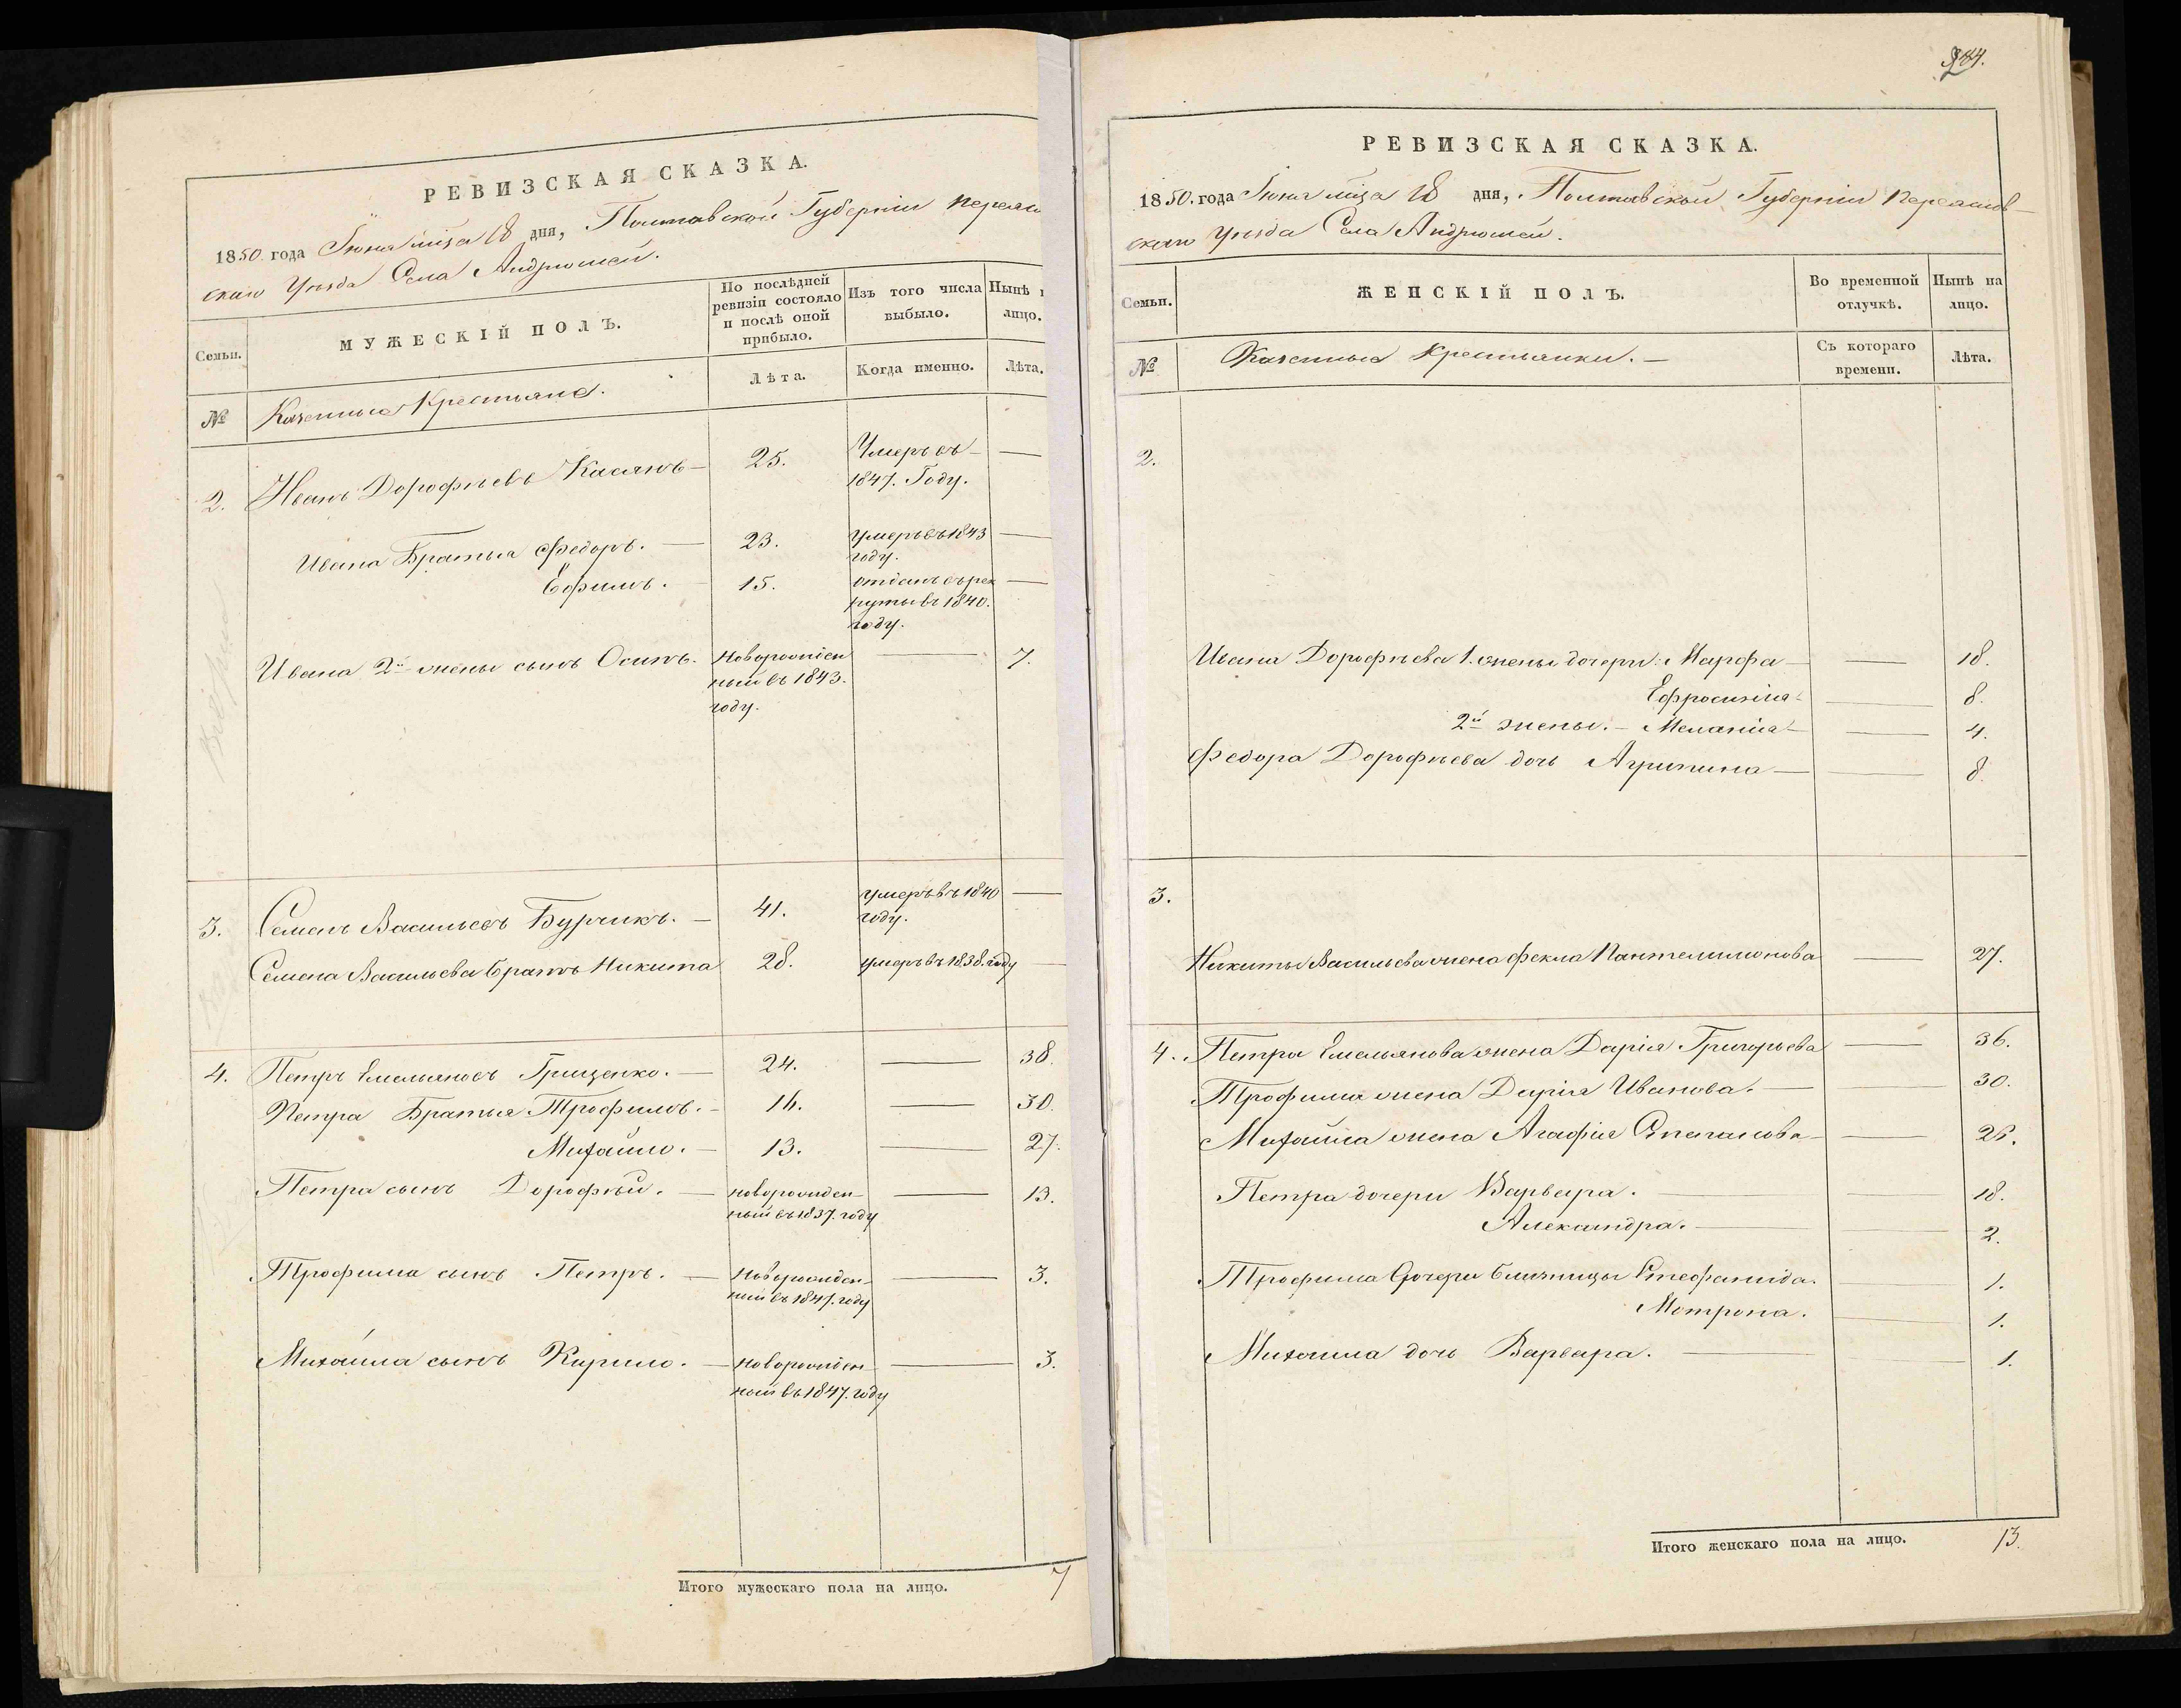 РЕВИЗСКАЯ СКАЗКА.
1850 года Іюня мѣса 18 дня, Полтавской Губерніи Переясл
скаго Уѣзда Села Андрюшей.
Семьи.
МУЖЕСКІЙ ПОЛЪ.
По послѣдней ревизіи состояло и послѣ оной прибыло.
Изъ того числа выбыло.
Нынѣ
лицо.
№ Казенные Крестьяне.
Лѣта.
Когда именно.
Лѣта.
2. Иванъ Дорофѣевъ Касянъ — 25. Умеръ въ —
1847. Году.
Ивана Братья Федоръ. — 23. умеръ въ 1843 —
году.
Ефимъ. — 15. отданъ въ рек —
руты въ 1840.
году.
Ивана 2й жены сынъ Осипъ. Новорожден — 7.
ный въ 1843.
году.
3. Семенъ Васильевъ Бурчикъ. — 41. умеръ въ 1840 —
году.
Семена Васильева Братъ Никита 28. умеръ въ 1838. году —
4. Петръ Емельяновъ Грищенко. — 24. — 38.
Петра Братья Трофимъ. — 16. — 30.
Михайло. — 13. — 27.
Петра сынъ Дорофѣй. — новорожден — 13.
ный въ 1837. году
Трофима сынъ Петръ. — Новорожден — 3.
ный въ 1847. году
Михайла сынъ Кирило. — новорожден — 3.
ный въ 1847. году
Итого мужескаго пола на лицо. 7
284.
РЕВИЗСКАЯ СКАЗКА.
1850. года Іюня мѣса 18 дня, Полтавской Губерніи Переяслов-
скаго Уѣзда Села Андрюшей.
Семьи.
ЖЕНСКІЙ ПОЛЪ.
Во временной отлучкѣ.
Нынѣ на лицо.
№ Казенные Крестьянки. —
Съ котораго времени.
Лѣта.
2.
Ивана Дорофѣева 1. жены дочери: Марфа — — 18.
Ефросинія — — 8.
2й жены. — Меланія — — 4.
Федора Дорофѣева дочь Агрипина — — 8.
3.
Никиты Васильева жена Фекла Пантелимонова — 27.
4. Петра Емельянова жена Дарія Григорьева — 36.
Трофима жена Дарія Иванова. — — 30.
Михайла жена Агафія Степанова — — 26.
Петра дочери Варвара. — — 18.
Александра. — — 2.
Трофима Дочери близницы Стефанида. — 1.
Мотрона. — 1.
Михаила дочь Варвара. — — 1.
Итого женскаго пола на лицо. 13.